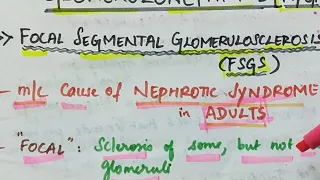 → FOCAL SEGMENTAL GLOMERULOSCLEROSIS
(FSGS)
- m/c Cause of NEPHROTIC SYNDROME
in ADULTS
- "FOCAL": Sclerosis of some, but not
glomeruli